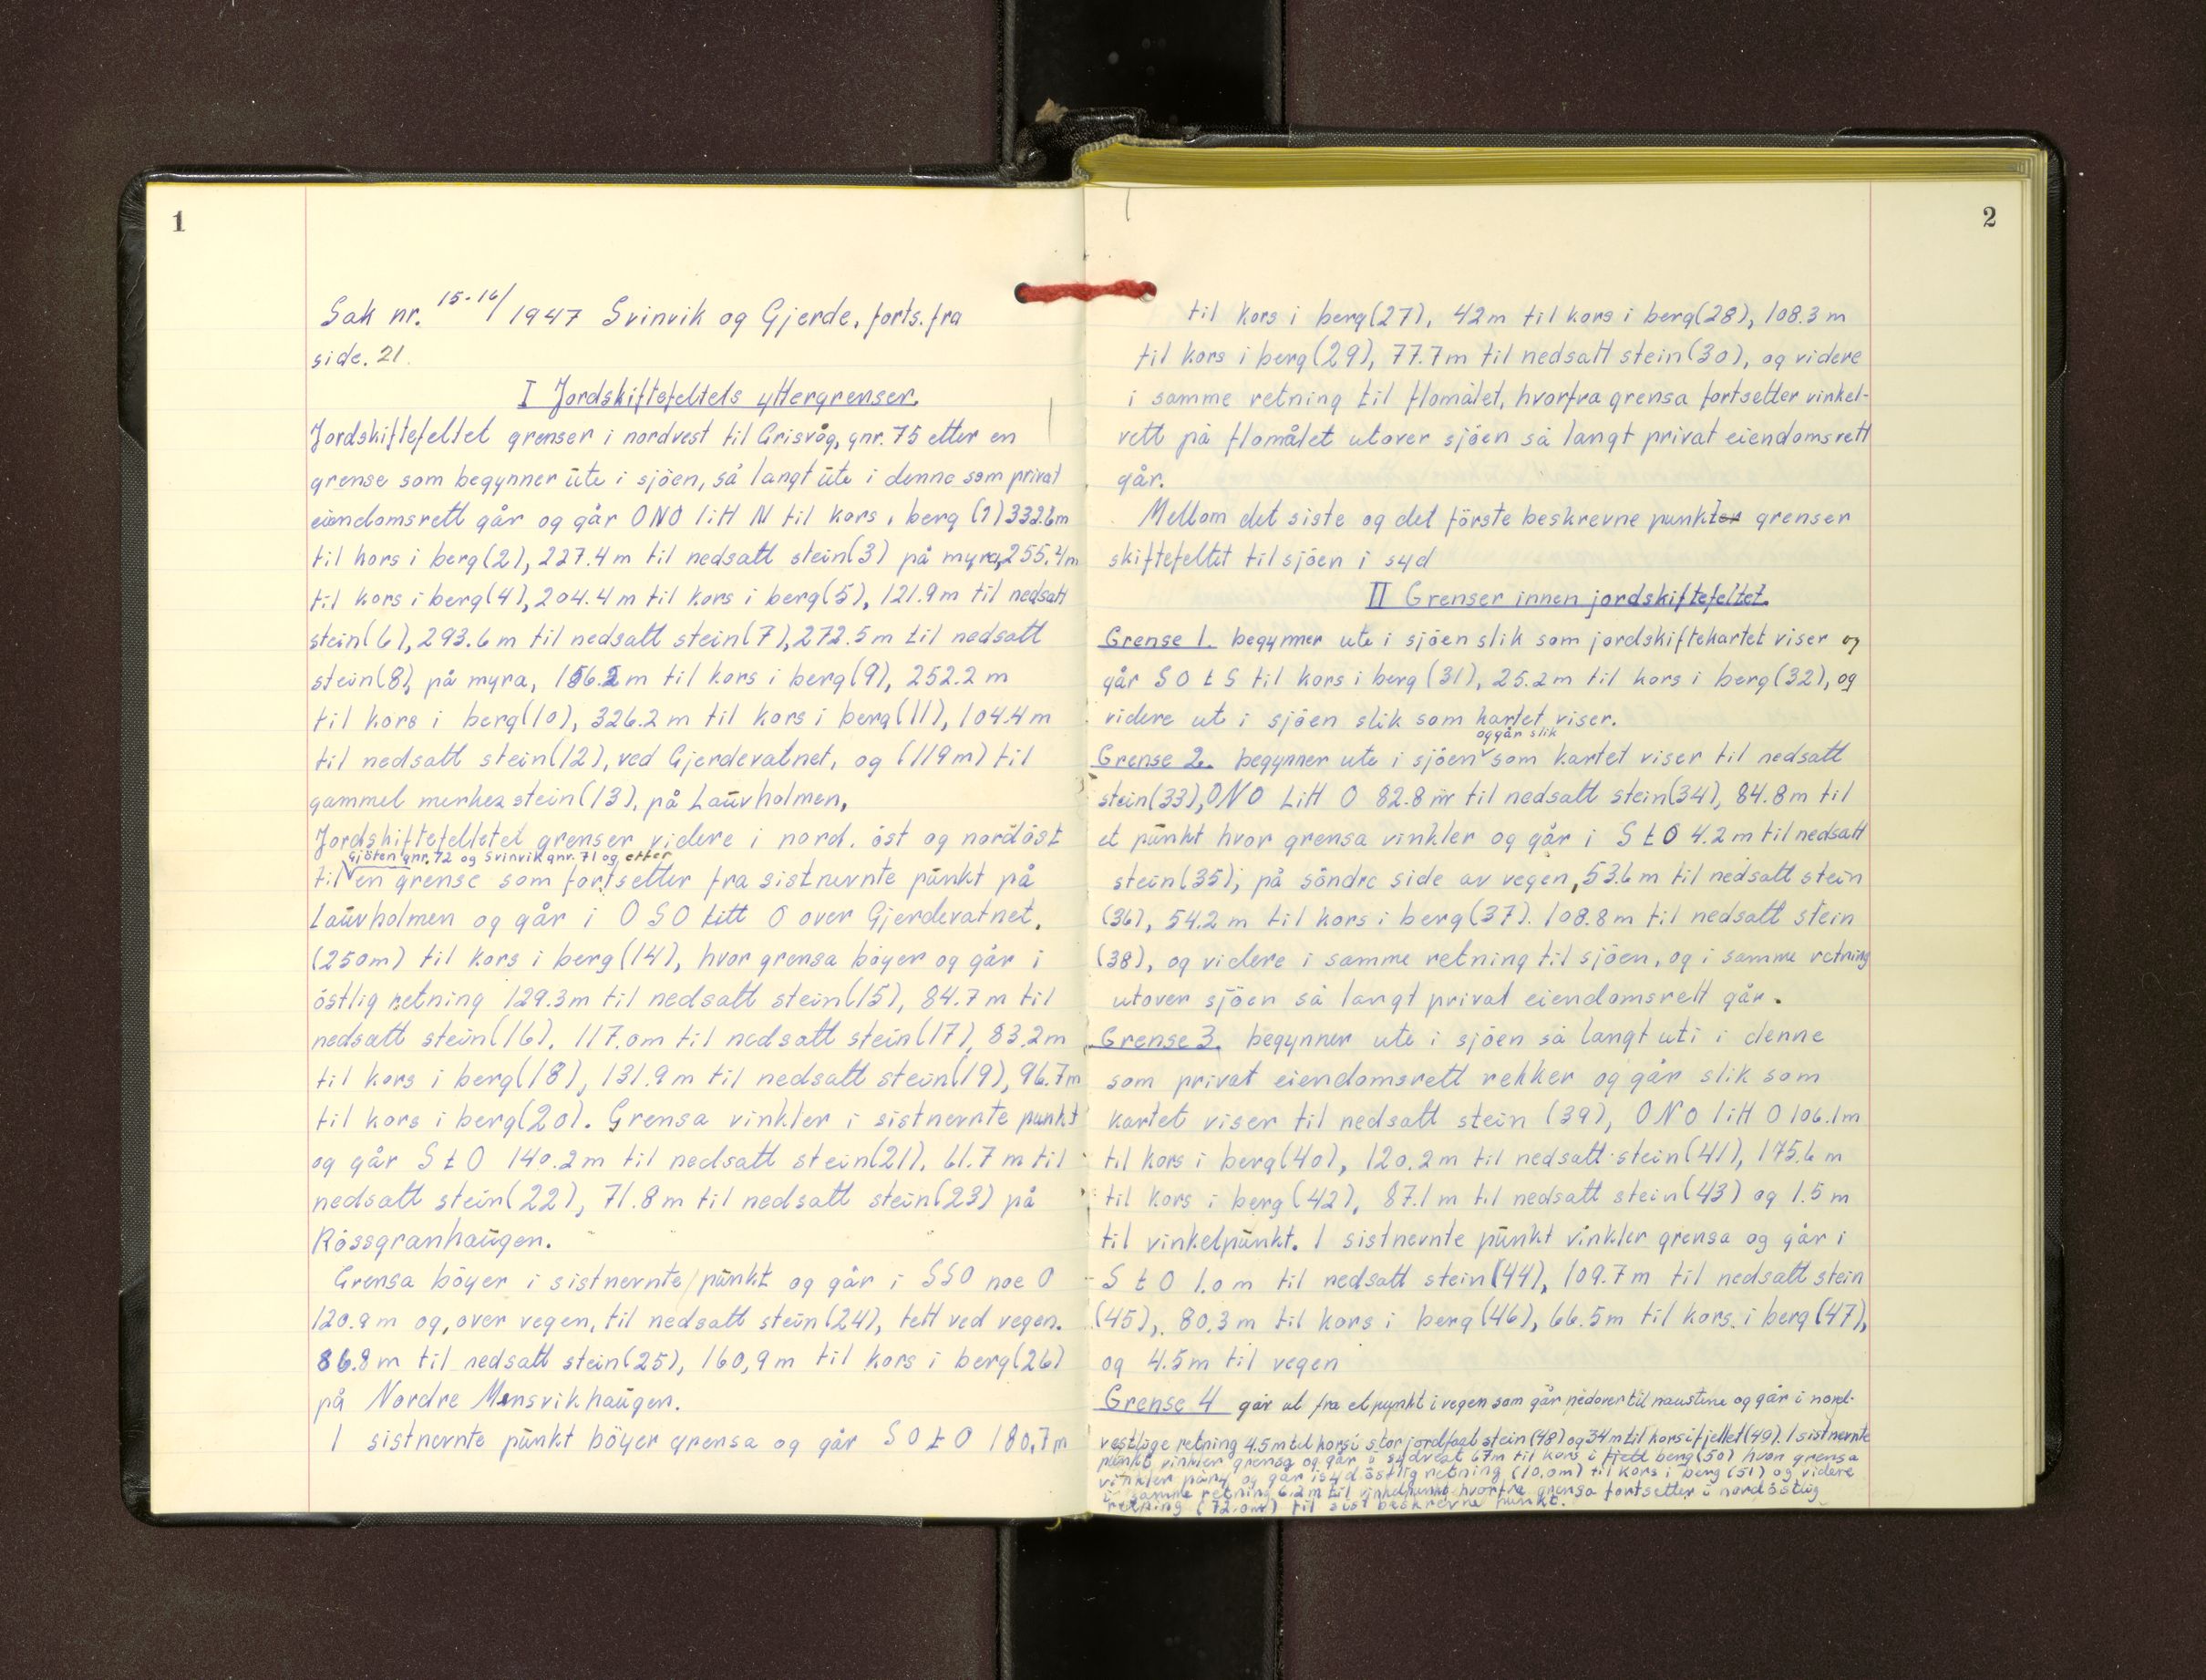 1
Sak nr. 15-16/1947 Svinvik og Gjerde, forts. fra
side. 21.
I Jordskiftefeltets yttergrenser.
Jordskiftefeltet grenser i nordvest til Grisvåg, gnr. 75 etter en
grense som begynner ute i sjöen, så langt ute i denne som privat
eiendomsrett går og går ONO litt N til kors i berg (1) 332.6m
til kors i berg(2), 227.4m til nedsatt stein(3) på myra, 255.4m
til kors i berg(4), 204.4m til kors i berg(5), 121.9m til nedsatt
stein(6), 293.6m til nedsatt stein(7), 272.5m til nedsatt
stein(8), på myra, 156.2m til kors i berg(9), 252.2 m
til kors i berg(10), 326.2m til kors i berg(11), 104.4m
til nedsatt stein(12), ved Gjerdevatnet, og (119m) til
gammel merkes stein(13), på Lauvholmen,
Jordskiftefelletet grenser videre i nord, öst og nordöst
Gjöten gnr. 72 og Svinvik gnr. 71 og etter
til en grense som fortsetter fra sistnevnte punkt på
Lauvholmen og går i OSO litt O over Gjerdevatnet,
(250m) til kors i berg(14), hvor grensa böyer og går i
östlig retning 129.3m til nedsatt stein(15), 84.7m til
nedsatt stein(16), 117.0m til nedsatt stein(17), 83.2m
til kors i berg(18), 131.9m til nedsatt stein(19), 96.7m
til kors i berg(20). Grensa vinkler i sistnevnte punkt
og går S t O 140.2m til nedsatt stein(21), 61.7m til
nedsatt stein(22), 71.8m til nedsatt stein(23) på
Rössgranhaugen.
Grensa böyer i sistnevnte punkt og går i SSO noe O
120.9m og, over vegen, til nedsatt stein(24), tett ved vegen.
86.8m til nedsatt stein(25), 160,9m til kors i berg(26)
på Nordre Mensvikhaugen.
I sistnevnte punkt böyer grensa og går SO t O 180,7m
2
til kors i berg(27), 42m til kors i berg(28), 108.3m
til kors i berg(29), 77.7m til nedsatt stein(30), og videre
i samme retning til flomålet, hvorfra grensa fortsetter vinkel-
rett på flomålet utover sjöen så langt privat eiendomsrett
går.
Mellom det siste og det förste beskrevne punkter grenser
skiftefeltet til sjöen i syd
II Grenser innen jordskiftefeltet.
Grense 1. begynner ute i sjöen slik som jordskiftekartet viser og
går SO t S til kors i berg(31), 25.2m til kors i berg(32), og
videre ut i sjöen slik som kartet viser.
og går slik
Grense 2. begynner ute i sjöen som kartet viser til nedsatt
stein(33), ONO Litt O 82.8 m til nedsatt stein(34), 84.8m til
et punkt hvor grensa vinkler og går i S t O 4.2m til nedsatt
stein(35); på söndre side av vegen, 53.6m til nedsatt stein
(36), 54.2m til kors i berg(37). 108.8m til nedsatt stein
(38), og videre i samme retning til sjöen, og i samme retning
utover sjöen så langt privat eiendomsrett går.
Grense 3. begynner ute i sjöen så langt uti i denne
som privat eiendomsrett rekker og går slik som
kartet viser til nedsatt stein (39), ONO litt O 106.1m
til kors i berg(40), 120.2m til nedsatt stein(41), 175.6m
til kors i berg(42), 87.1m til nedsatt stein(43) og 1.5m
til vinkelpunkt. I sistnevnte punkt vinkler grensa og går i
S t O 1.0m til nedsatt stein(44), 109.7m til nedsatt stein
(45), 80.3m til kors i berg(46), 66.5m til kors i berg(47),
og 4.5m til vegen
Grense 4 går ut fra et punkt i vegen som går nedover til naustene og går i nord-
vestlige retning 4.5m til kors i stor jordfast stein(48) og 34m til kors i fjellet(49). I sistnevnte
punkt vinkler grensa og går i sydvest 67m til kors i fjell berg(50) hvor grensa
vinkler påny og går i syd östlig retning (10,0m) til kors i berg(51) og videre
i samme retning 6.2m til vinkelpunkt hvorfra grensa fortsetter i nordöstlig
retning (72.0m) til sist beskrevne punkt.